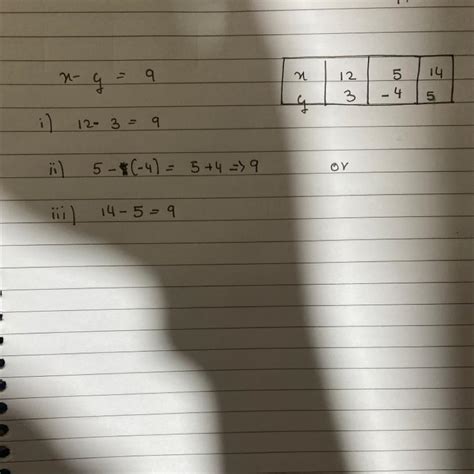 x - y = 9
x 12 5 14
y 3 -4 5
i) 12 - 3 = 9
ii) 5 - (-4) = 5 + 4 => 9 or
iii) 14 - 5 = 9